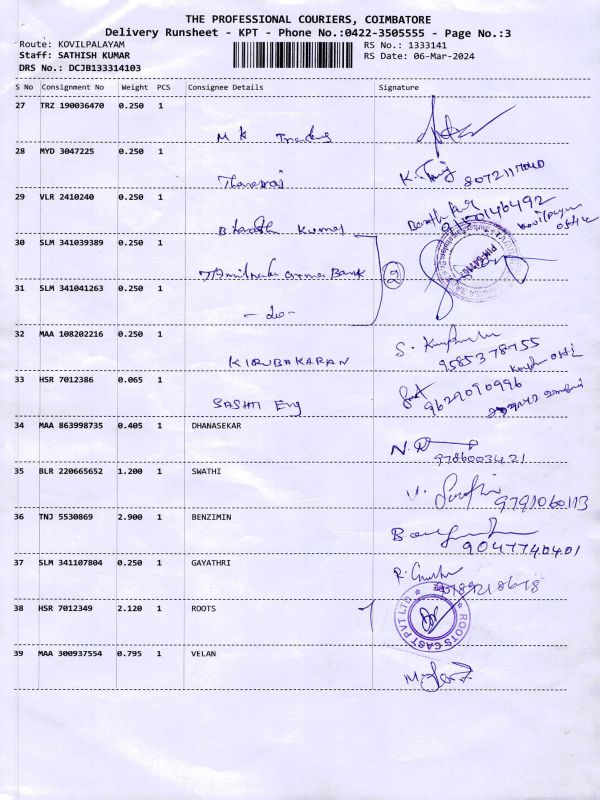 THE PROFESSIONAL COURIERS, COIMBATORE
Delivery Runsheet - KPT - Phone No.:0422-3505555 - Page No.:3
Route: KOVILPALAYAM RS No.: 1333141
Staff: SATHISH KUMAR RS Date: 06-Mar-2024
DRS No.: DCJB133314103
S No Consignment No Weight PCS Consignee Details Signature
27 TRZ 190036470 0.250 1
M K Trading
28 MYD 3047225 0.250 1
Thanaraj
29 VLR 2410240 0.250 1
Bharath Kumar
30 SLM 341039389 0.250 1
Tamilnadu Grama Bank 2
31 SLM 341041263 0.250 1
- do -
32 MAA 108202216 0.250 1 S.
KIRUBAKARAN 9585378755
33 HSR 7012386 0.065 1
SASHTI Eng 9629090996
34 MAA 863998735 0.405 1 DHANASEKAR
9786003421
35 BLR 220665652 1.200 1 SWATHI V. Swathi
9791060113
36 TNJ 5530869 2.900 1 BENZIMIN
9047740401
37 SLM 341107804 0.250 1 GAYATHRI
38 HSR 7012349 2.120 1 ROOTS ROOTS CAST PVT LTD
39 MAA 300937554 0.795 1 VELAN